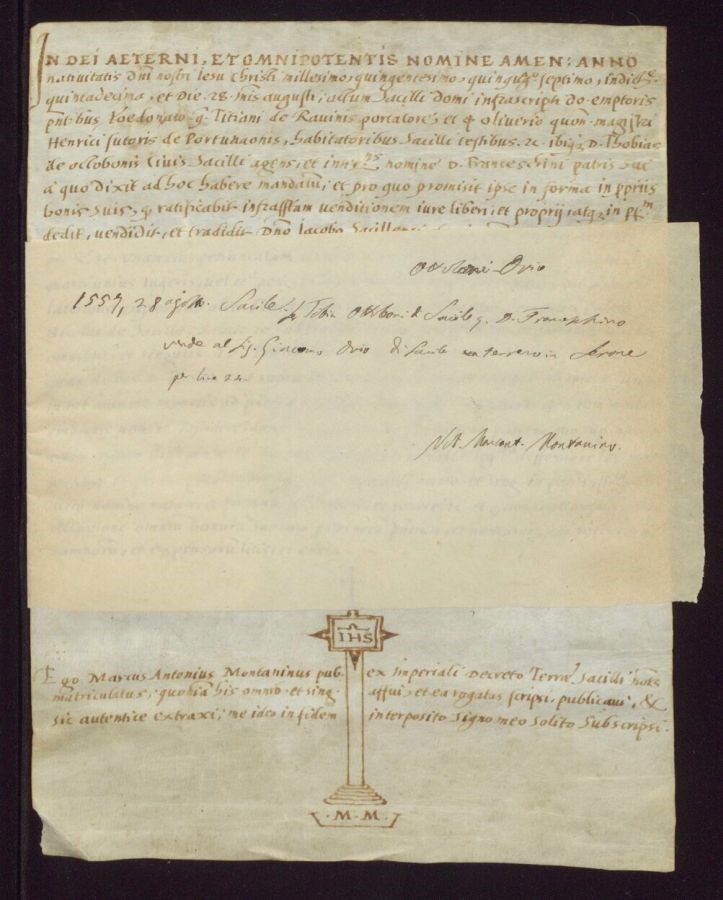 IN DEI AETERNI, ET OMNIPOTENTIS NOMINE AMEN: ANNO
nativitatis dñi nostri Iesu Christi millesimo, quingentesimo, quinquag.º septimo, indict.
quintadecima, et Die 28 mis augusti, actum Sacilli domi infrascripti do. emptoris
pñtibus Foedonato q. Titiani de Ravinis portatore, et q oliverio quon. magistri
Henrici sutoris de Portunaonis, habitatoribus Sacilli testibus. &c. ibiq. D. Thobias
de octobonis Civis Sacilli agens, et nomine D. Franceschini patris
a quo dixit ad hoc habere mandatũ, et pro quo promisit ipse in forma in pprijs
bonis suis, q ratificabit infrascriptam venditionem iure liberi, et proprij in
dedit, vendidit, et tradidit Dño Iacobo
Ottoboni-Ovio
1557, 28 agosto. Sacile. Tobia Ottoboni di Sacile q. D. Franceschino
vende al Sig. Giacomo Ovio di Sacile un terreno in Sarone
per lire 22.
Not. Marcant. Montanino.
IHS
Ego Marcus Antonius Montaninus pub. ex Imperiali Decreto Terrae Sacilli nots
matriculatus, quonia his omnib. et sing. affui, et ea rogatus scripsi, publicavi, &
sic autentice extraxi, me ideo in fidem interposito signo meo solito Subscripsi.
.M. M.